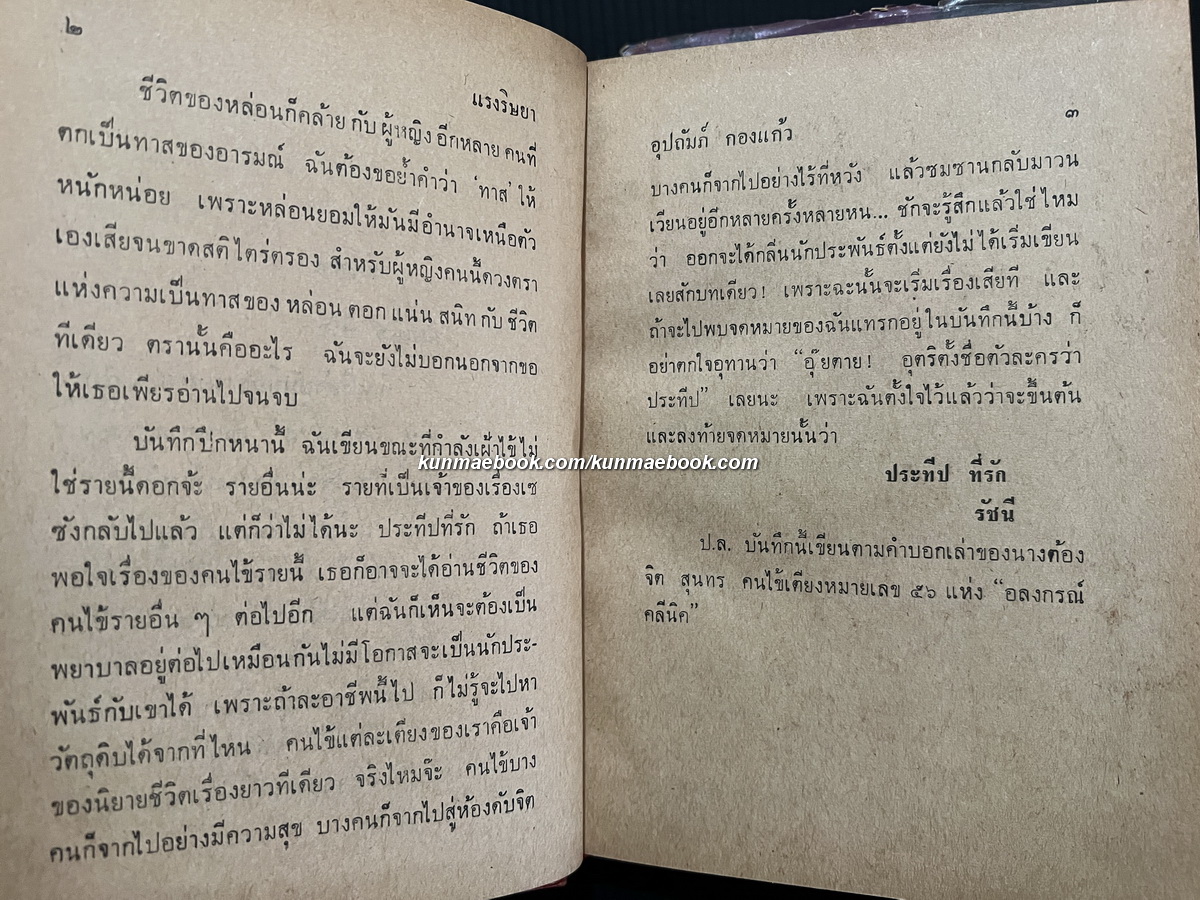 ๒
แรงริษยา
ชีวิตของหล่อนก็คล้าย กับ ผู้หญิง อีกหลาย คนที่
ตกเป็นทาสของอารมณ์ ฉันต้องขอย้ำคำว่า ‘ทาส’ ให้
หนักหน่อย เพราะหล่อนยอมให้มันมีอำนาจเหนือตัว
เองเสียจนขาดสติ ไตร่ตรอง สำหรับผู้หญิงคนนี้ดวงตรา
แห่งความเป็นทาสของ หล่อน ตอก แน่น สนิท กับ ชีวิต
ทีเดียว ตรานั้นคืออะไร ฉันจะยังไม่บอกนอกจากขอ
ให้เธอเพียรอ่านไปจนจบ
บันทึกปึกหนานี้ ฉันเขียนขณะที่กำลังเฝ้าไข้ ไม่
ใช่รายนี้ดอกจ้ะ รายอื่นน่ะ รายที่เป็นเจ้าของเรื่องเซ
ซังกลับไปแล้ว แต่ก็ว่าไม่ได้นะ ประทีปที่รัก ถ้าเธอ
พอใจเรื่องของคนไข้รายนี้ เธอก็อาจจะได้อ่านชีวิตของ
คนไข้รายอื่น ๆ ต่อไปอีก แต่ฉันก็เห็นจะต้องเป็น
พยาบาลอยู่ต่อไปเหมือนกันไม่มีโอกาสจะเป็นนักประ-
พันธ์กับเขาได้ เพราะถ้าละอาชีพนี้ไป ก็ไม่รู้จะไปหา
วัตถุดิบได้จากที่ไหน คนไข้แต่ละเตียงของเราคือเจ้า
ของนิยายชีวิตเรื่องยาวทีเดียว จริงไหมจ๊ะ คนไข้บาง
คนก็จากไปอย่างมีความสุข บางคนก็จากไปสู่ห้องดับจิต
๓
อุปถัมภ์ กองแก้ว
บางคนก็จากไปอย่างไร้ที่หวัง แล้วซมซานกลับมาวน
เวียนอยู่อีกหลายครั้งหลายหน... ชักจะรู้สึกแล้วใช่ไหม
ว่า ออกจะได้กลิ่นนักประพันธ์ตั้งแต่ยังไม่ได้เริ่มเขียน
เลยสักบทเดียว! เพราะฉะนั้นจะเริ่มเรื่องเสียที และ
ถ้าจะไปพบจดหมายของฉันแทรกอยู่ในบันทึกนี้บ้าง ก็
อย่าตกใจอุทานว่า “อุ๊ยตาย! อุตริตั้งชื่อตัวละครว่า
ประทีป” เลยนะ เพราะฉันตั้งใจไว้แล้วว่าจะขึ้นต้น
และลงท้ายจดหมายนั้นว่า
ประทีป ที่รัก
รัชนี
ป.ล. บันทึกนี้เขียนตามคำบอกเล่าของนางต้อง
จิต สุนทร คนไข้เตียงหมายเลข ๕๖ แห่ง “อลงกรณ์
คลีนิค”
kunmaebook.com/kunmaebook.com